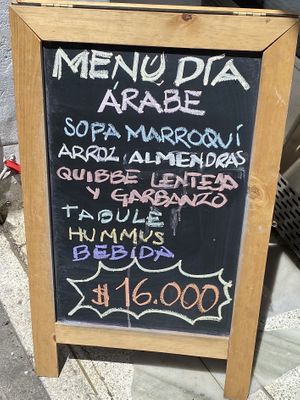 MENÚ DÍA
ÁRABE
SOPA MARROQUÍ
ARROZ ALMENDRAS
QUIBBE LENTEJA
Y GARBANZO
TABULE
HUMMUS
BEBIDA
$16.000